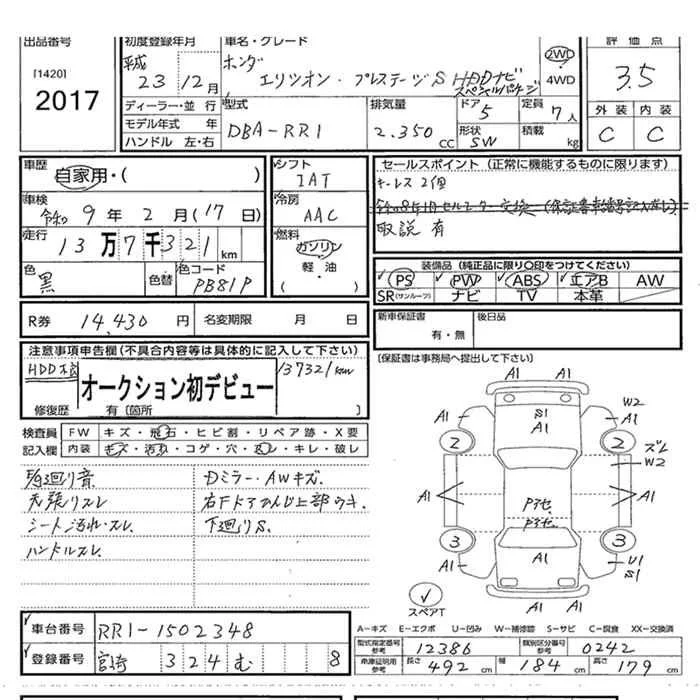 出品番号
[1420]
2017
初度登録年月
平成
23年12月
車名・グレード
ホンダ
エリシオン・プレステージS HDDナビ
スペシャルパッケージ
2WD
4WD
評価点
3.5
外装 内装
C C
ディーラー・並行
モデル年式 年
ハンドル 左・右
型式
DBA-RR1
排気量
2.350 CC
ドア
5
形状
SW
定員
7人
積載
kg
車歴
自家用・( )
車検
令和 9年 2月(17日)
走行
13万7千321km
色
黒
色替
色コード
PB81P
シフト
IAT
冷房
AAC
燃料
ガソリン
軽・油
( )
セールスポイント(正常に機能するものに限ります)
キーレス2個
取説有
装備品(純正品に限り○印をつけてください)
PS PW ABS エアB AW
SR(サンルーフ) ナビ TV 本革
R券 14,430円
名変期限 月 日
新車保証書
有・無
後日品
注意事項申告欄(不具合内容等は具体的に記入して下さい)
オークション初デビュー
137321km
修復歴 有〔箇所 〕
〔保証書は事務局へ提出して下さい〕
検査員
記入欄
FW キズ・飛石・ヒビ割・リペア跡・X要
内装 キズ・汚れ・コゲ・穴・スレ・キレ・破レ
天張りスレ
シート汚れ・スレ
ハンドルスレ
Dミラー・AWキズ
下廻りS.
A1
A1 A1
S1
A1
W2
A1 A1
2 2
ズレ
W2
A1 A1
Pアセ
Pアセ
3 3
A1
A1
U1
S1
A1
スペアT
A-キズ E-エクボ U-凹み W-補修跡 S-サビ C-腐食 XX-交換済
車台番号 RR1-1502348
登録番号 宮崎 324 む 8
型式指定番号
参考
12386
類別区分番号
参考
0242
車庫証明用
参考
長さ 492cm 幅 184cm 高さ 179cm